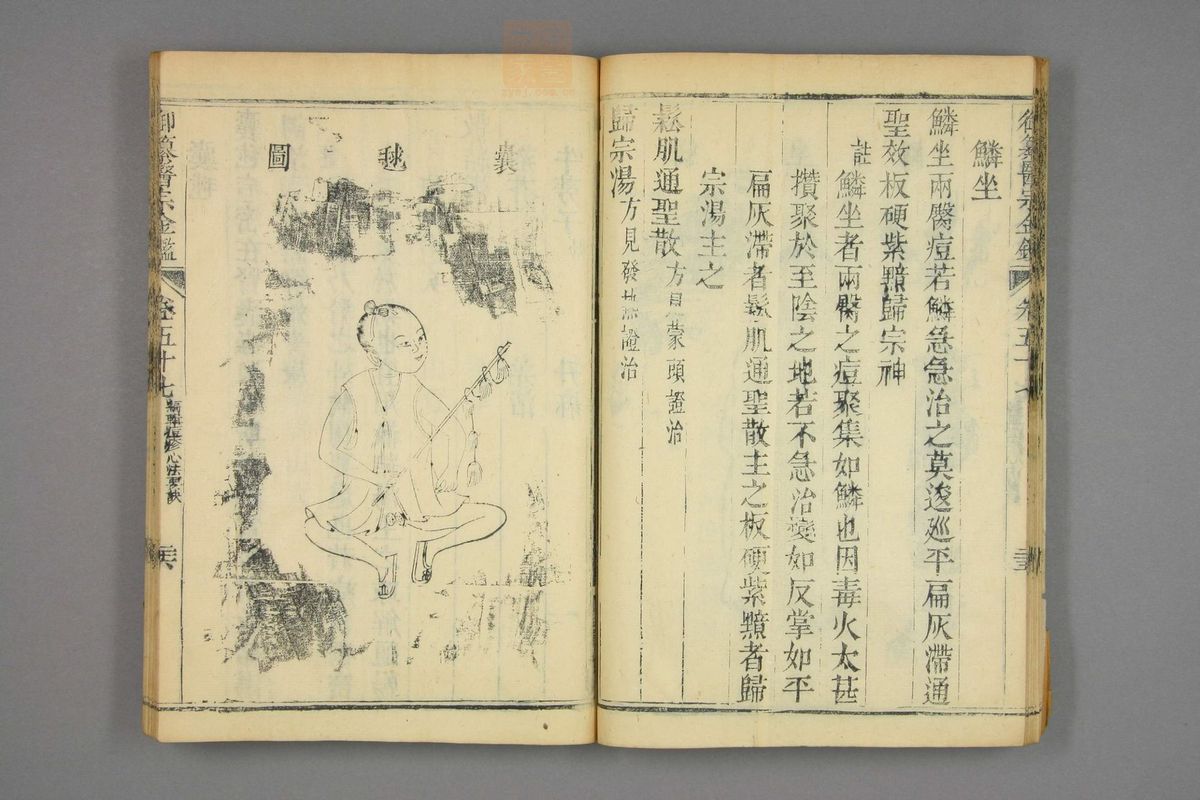 鱗坐
鱗坐兩臀痘若鱗急急治之莫逡巡平扁灰滯通
聖效板硬紫黯歸宗神
註
鱗坐者兩臀之痘聚集如鱗也因毒火太甚
攢聚於至陰之地若不急治變如反掌如平
扁灰滯者鬆肌通聖散主之板硬紫黯者歸
宗湯主之
鬆肌通聖散方見蒙頭證治
歸宗湯方見發熱證治
御纂醫宗金鑑
卷五十七
囊毬圖
御纂醫宗金鑑
卷五十七
新輯痘疹心法要訣